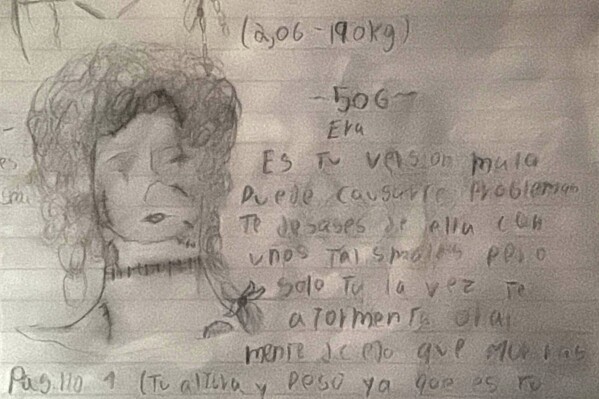 (2,06 - 190kg)
~506~
Era
Es Tu version mala
Puede causarte Problemas
Te desases de ella con
unos Talismales pero
solo Tu la vez Te
atormenta
mente que mueras
Pasillo 1 (Tu altura y peso ya que es tu